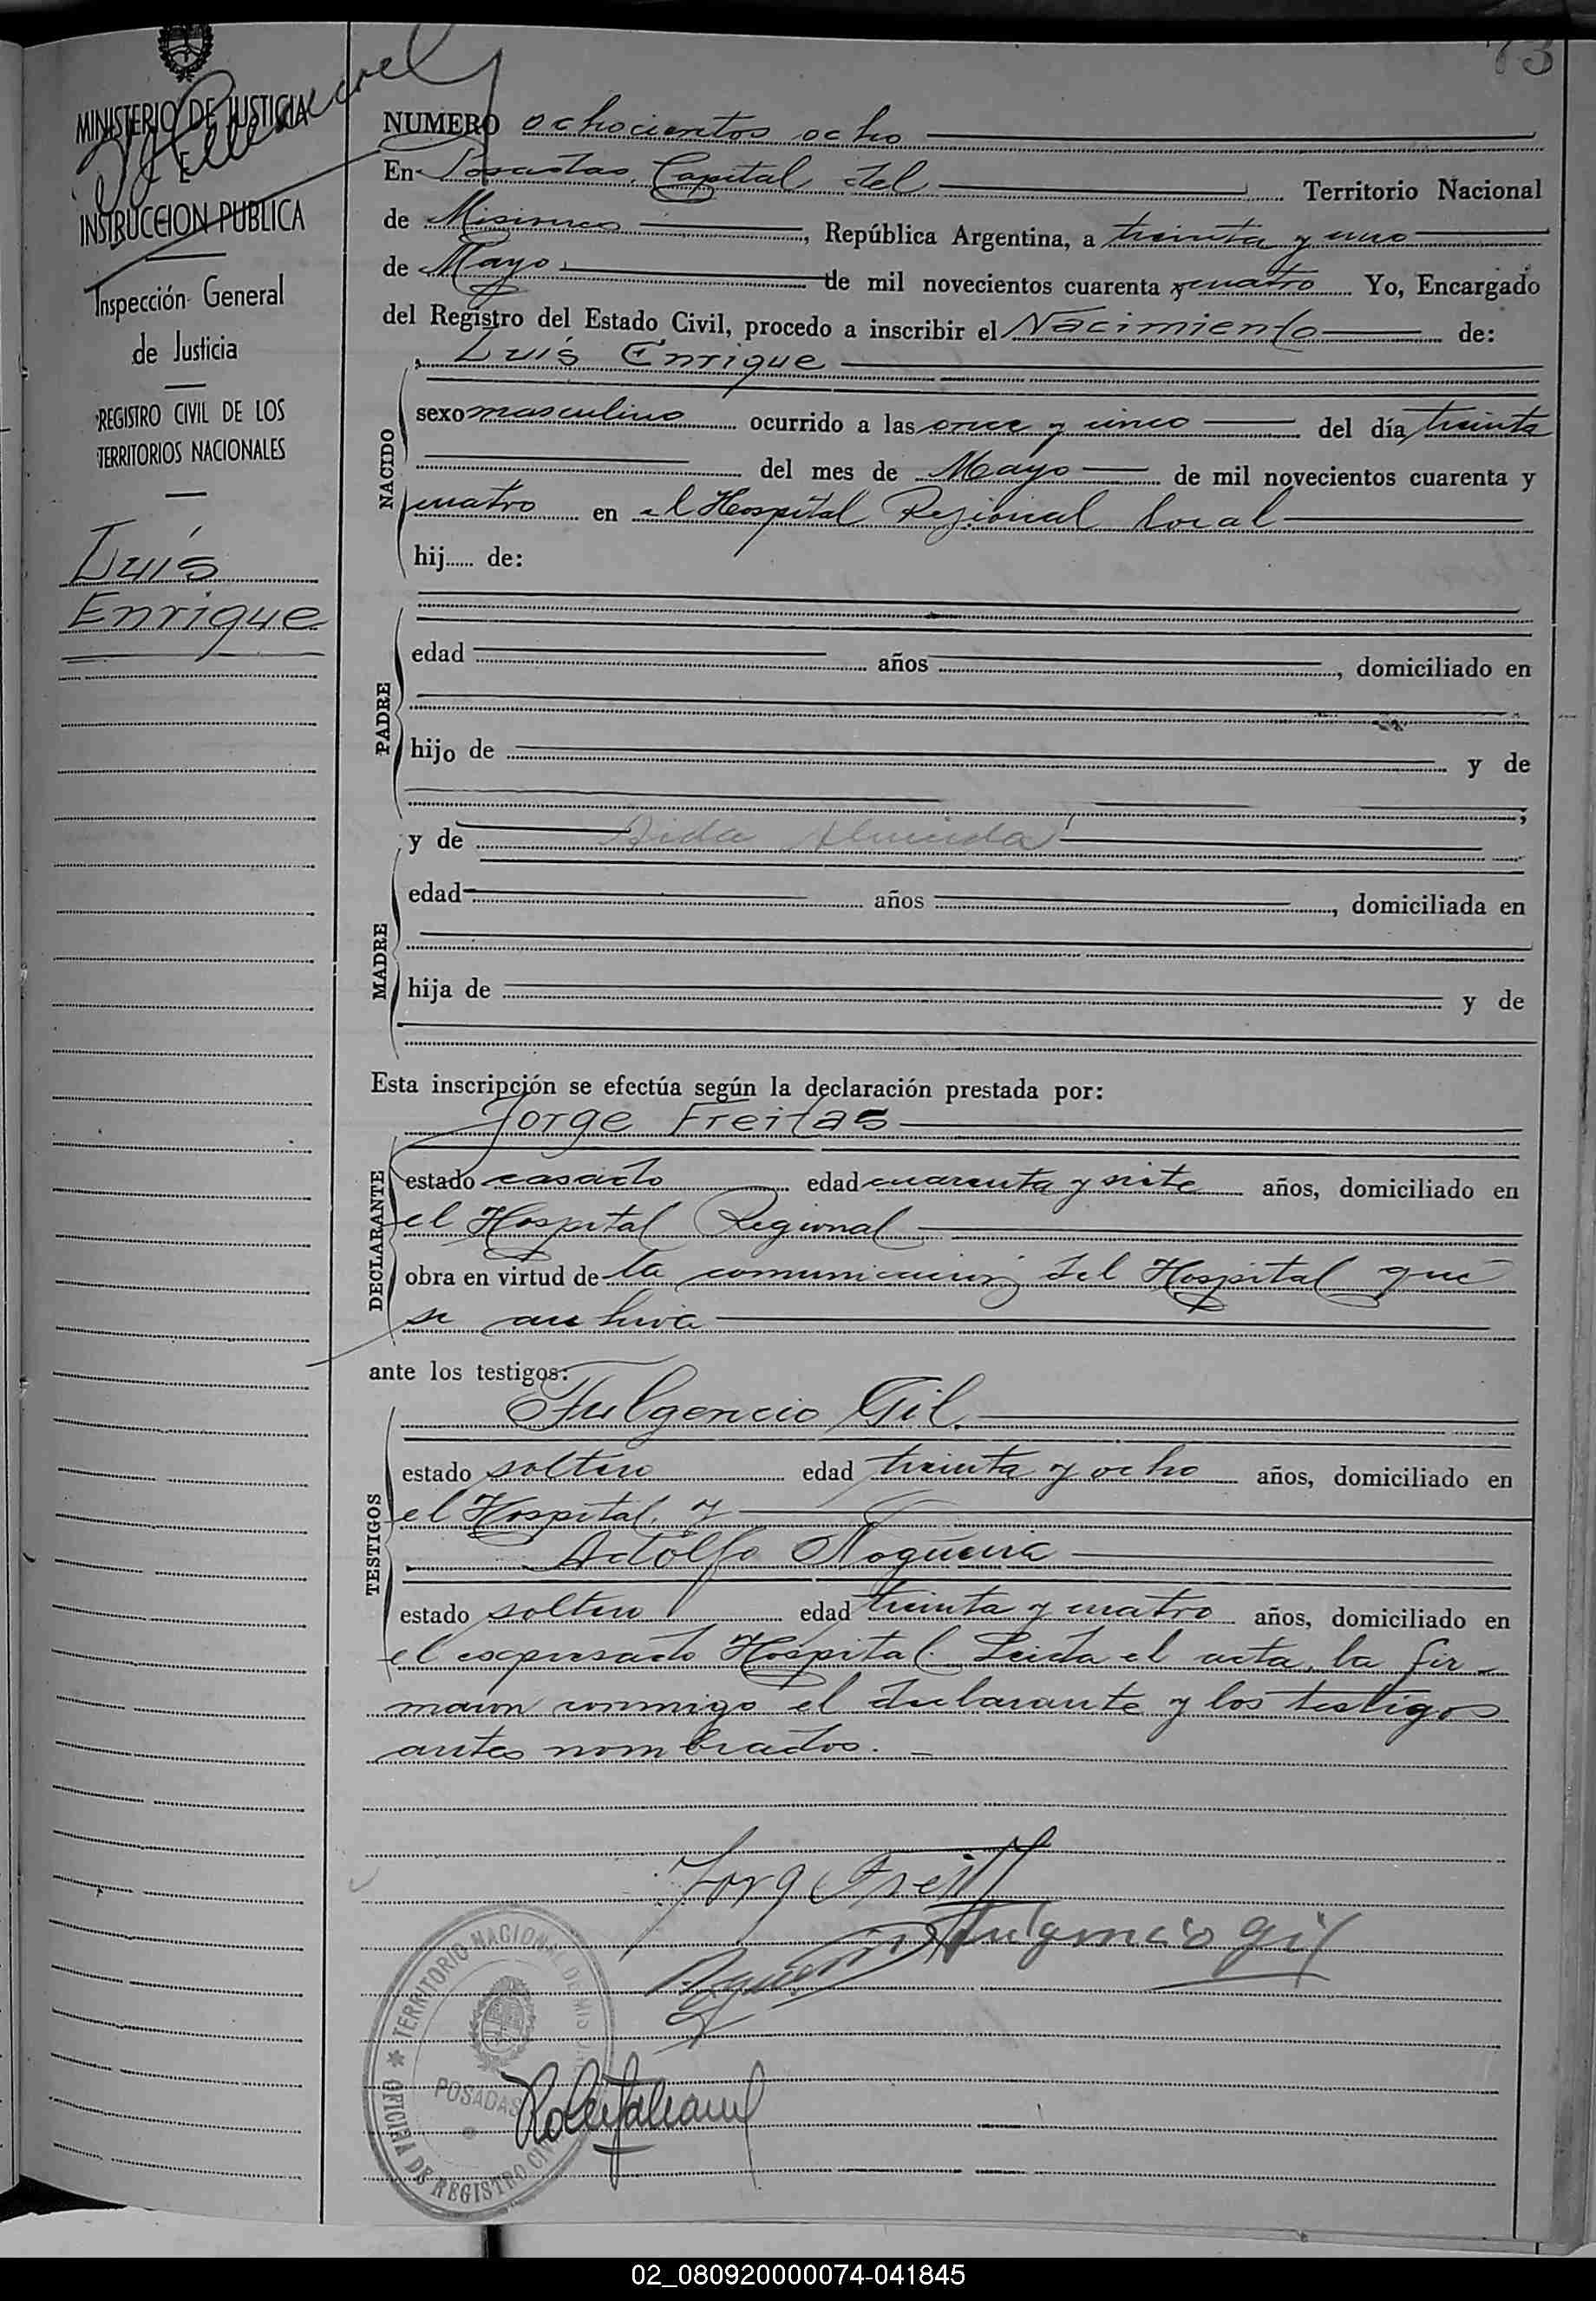 73
MINISTERIO DE JUSTICIA
E
INSTRUCCION PUBLICA
Inspección General
de Justicia
REGISTRO CIVIL DE LOS
TERRITORIOS NACIONALES
Luis
Enrique
NUMERO ochocientos ocho
En Posadas, Capital del Territorio Nacional
de Misiones, República Argentina, a treinta y uno
de Mayo de mil novecientos cuarenta y cuatro Yo, Encargado
del Registro del Estado Civil, procedo a inscribir el Nacimiento de:
Luis Enrique
NACIDO
sexo masculino ocurrido a las once y cinco del día treinta
del mes de Mayo de mil novecientos cuarenta y
cuatro en el Hospital Regional local
hij...... de:
PADRE
edad años, domiciliado en
hijo de y de
;
y de Aida Almeida
MADRE
edad años, domiciliada en
hija de y de
Esta inscripción se efectúa según la declaración prestada por:
Jorge Freitas
DECLARANTE
estado casado edad cuarenta y siete años, domiciliado en
el Hospital Regional
obra en virtud de la comunicación del Hospital que
se archiva
ante los testigos:
Fulgencio Gil
TESTIGOS
estado soltero edad treinta y ocho años, domiciliado en
el Hospital, y
Adolfo Nogueira
estado soltero edad treinta y cuatro años, domiciliado en
el expresado Hospital. Leida el acta, la fir-
maron conmigo el declarante y los testigos
antes nombrados. -
Jorg Freit
Fulgencio Gil
TERRITORIO NACIONAL DE MISIONES
POSADAS
OFICINA DE REGISTRO CIVIL
02_080920000074-041845